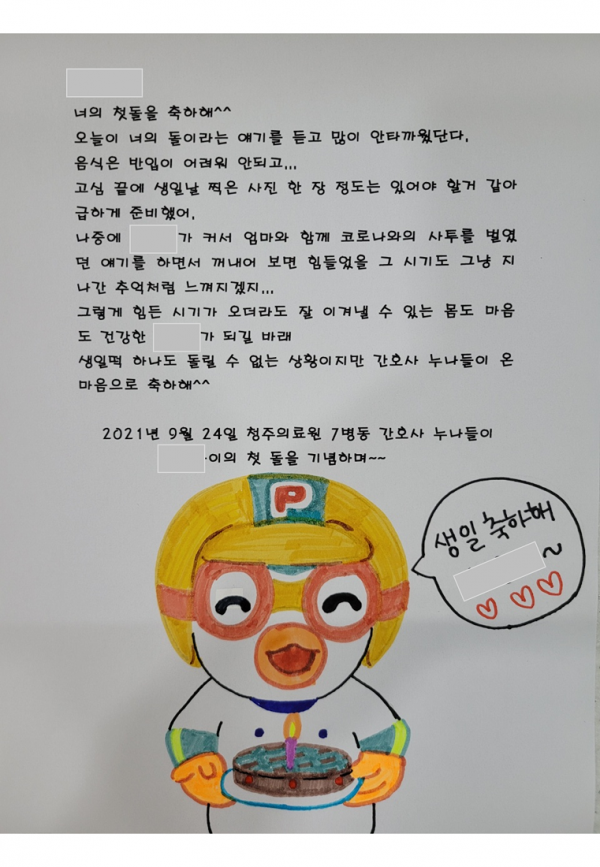 너의 첫돌을 축하해^^
오늘이 너의 돌이라는 얘기를 듣고 많이 안타까웠단다.
음식은 반입이 어려워 안되고...
고심 끝에 생일날 찍은 사진 한 장 정도는 있어야 할거 같아
급하게 준비했어.
나중에 가 커서 엄마와 함께 코로나와의 사투를 벌였
던 얘기를 하면서 꺼내어 보면 힘들었을 그 시기도 그냥 지
나간 추억처럼 느껴지겠지...
그렇게 힘든 시기가 오더라도 잘 이겨낼 수 있는 몸도 마음
도 건강한 가 되길 바래
생일떡 하나도 돌릴 수 없는 상황이지만 간호사 누나들이 온
마음으로 축하해^^
2021년 9월 24일 청주의료원 7병동 간호사 누나들이
이의 첫 돌을 기념하며~~
P
생일 축하해
~